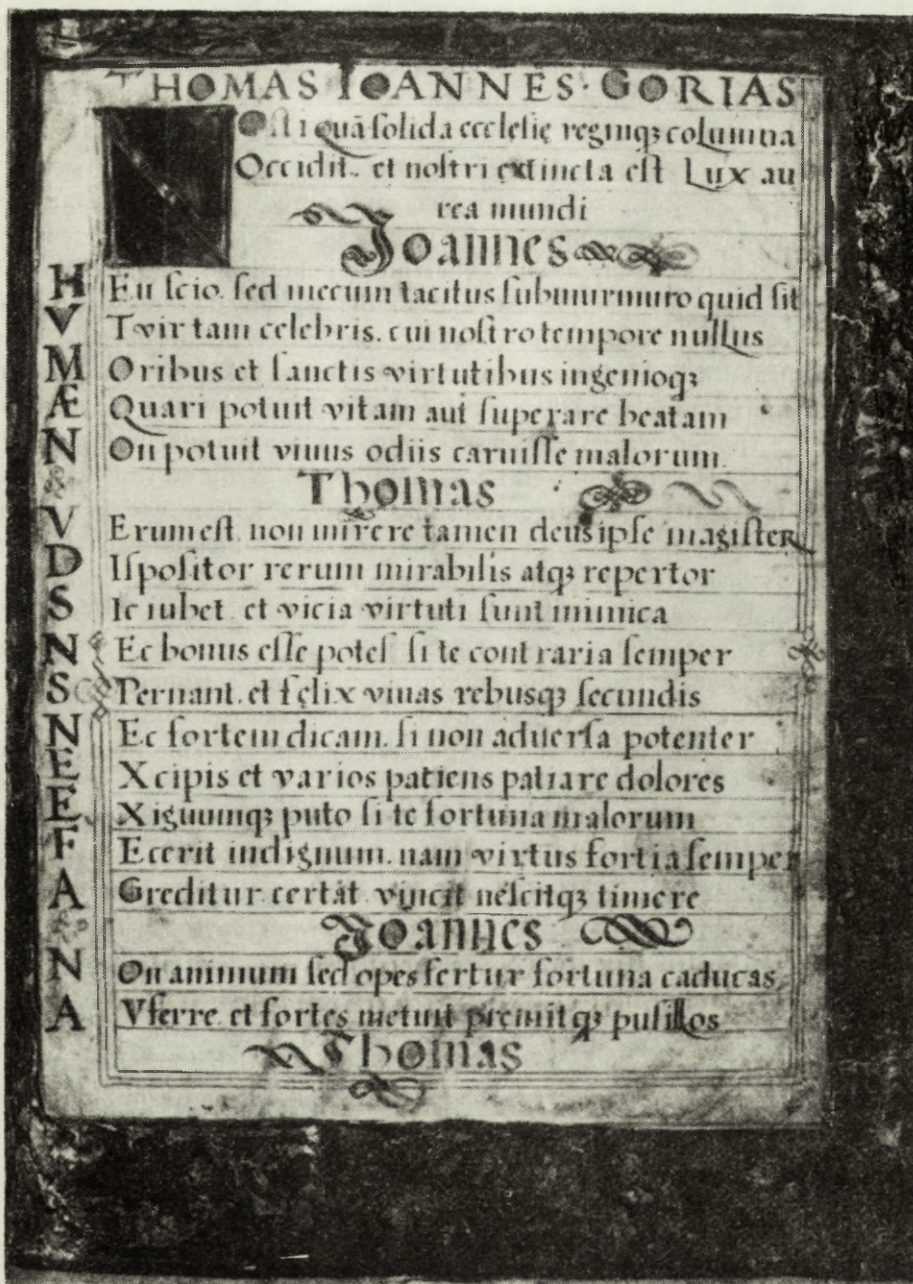 THOMAS IOANNES · GORIAS
Osti quã solida ecclesię reginqꝫ columna
Occidit. et nostri extincta est Lux au
rea mundi
Joannes
H Eu scio. sed mecum tacitus submurmuro quid sit
V T vir tam celebris. cui nostro tempore nullus
M Oribus et sanctis virtutibus ingenioqꝫ
Æ Quari potuit vitam aut superare beatam
N On potuit viuus odiis caruisse malorum.
Thomas
V Erum est non mirere tamen deus ipse magister
D Ispositor rerum mirabilis atqꝫ repertor
S Ic iubet et vicia virtuti sunt inimica
N Ec bonus esse potes si te contraria semper
S Pernant. et fęlix viuas rebusqꝫ secundis
N Ec fortem dicam. si non aduersa potenter
E Xcipis et varios patiens patiare dolores
E Xiguumqꝫ puto si te fortuna malorum
F Ecerit indignum. nam virtus fortia semper
A Greditur certat vincit nescitqꝫ timere
Joannes
N On animum sed opes fertur fortuna caducas
A Vferre et fortes metuit premitqꝫ pusillos
Thomas